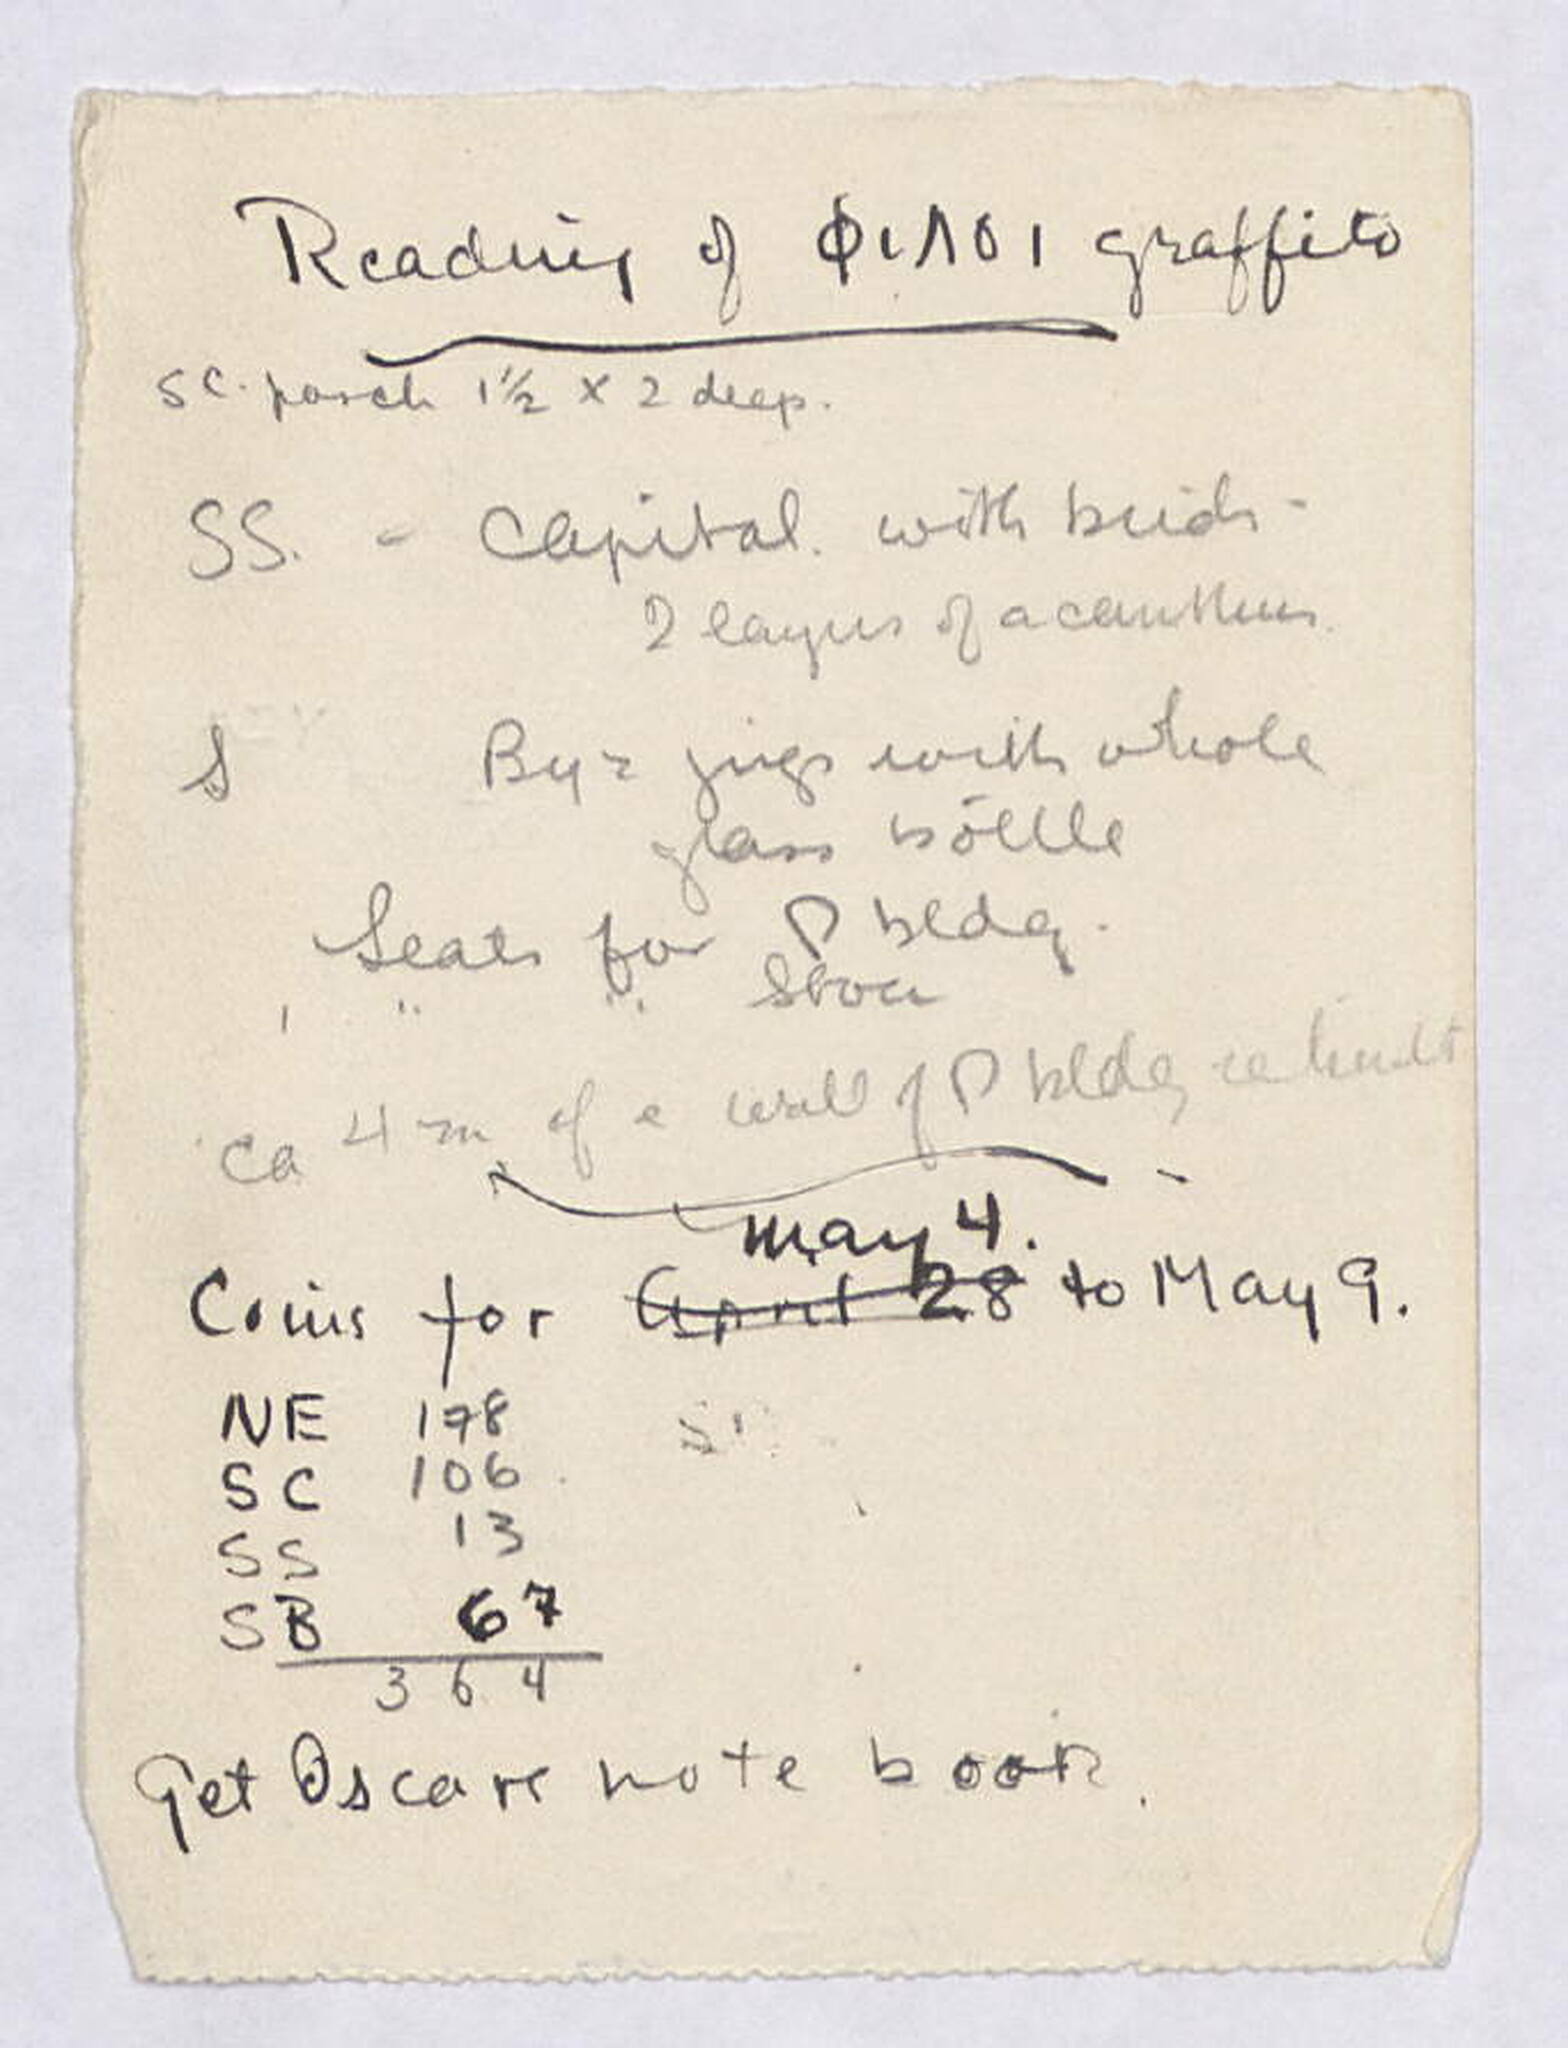 Reading of ΦΙΛΟΙ graffito
SC. porch 1½ x 2 deep.
SS. - Capital. with birds -
2 layers of acanthus.
S Byz jugs with whole
glass bottle
Seats for Π bldg.
" " " Stoa
ca 4 m of e wall of Π bldg rebuilt
May 4.
Coins for April 28 to May 9.
NE 178
SC 106
SS 13
SB 67
364
Get Oscars note book.